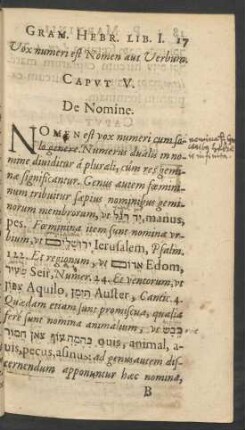 GRAM. HEBR. LIB. I. 17
Vox numeri est Nomen aut Verbum.
CAPVT V.
De Nomine.
NOMEN est vox numeri cum so-
lo genere. Numerus dualis in no-
mine dividitur à plurali, cùm res gemi-
na significantur. Genus autem fœmini-
num tribuitur sæpius nominibus gemi-
norum membrorum, vt יד רגל, manus,
pes. Fœminina item sunt nomina vr-
bium, vt ירושלים Ierusalem, Psalm.
122. Et regionum, vt אדום Edom,
שעיר Seir, Numer. 24. Et ventorum, vt
צפון Aquilo, תימן Auster, Cantic. 4.
Quædam etiam sunt promiscua, qualia
ferè sunt nomina animalium, vt כבש
בהמה עוף צאן חמור ouis, animal, a-
uis, pecus, asinus: at genus autem dis-
cernendum apponuntur hæc nomina,
B